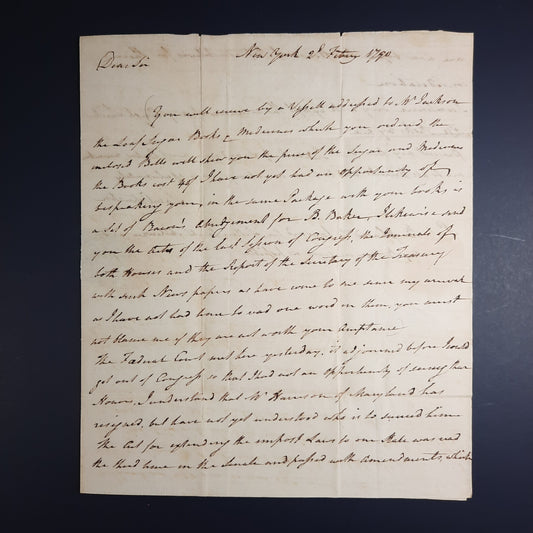 New York 2d Febry 1790
Dear Sir
You will receive by a Vessell addressed to Mr Jackson
the Loaf Sugar Books & Medecines which you ordered the
inclosed Bills will shew you the price of the Sugar and Medecines
the Books cost I have not yet had an opportunity of
bespeaking yours, in the same Package with your books is
a Set of Bacon's Abridgement for B. Baker, I likewise send
you the Acts of the last Session of Congress, the Journals of
both Houses and the Report of the Secretary of the Treasury
with such News papers as have come to me since my arrival
as I have not had time to read one word in them, you must
not blame me if they are not worth your acceptance
The Fæderal Court met here yesterday, it adjourned before I could
get out of Congress so that I had not an opportunity of seeing their
Honors, I understand that Mr Harrison of Maryland has
resigned, but have not yet understood who is to succeed him
The Act for extending the impost Laws to our State was read
the third time in the Senate and passed with amendments, which